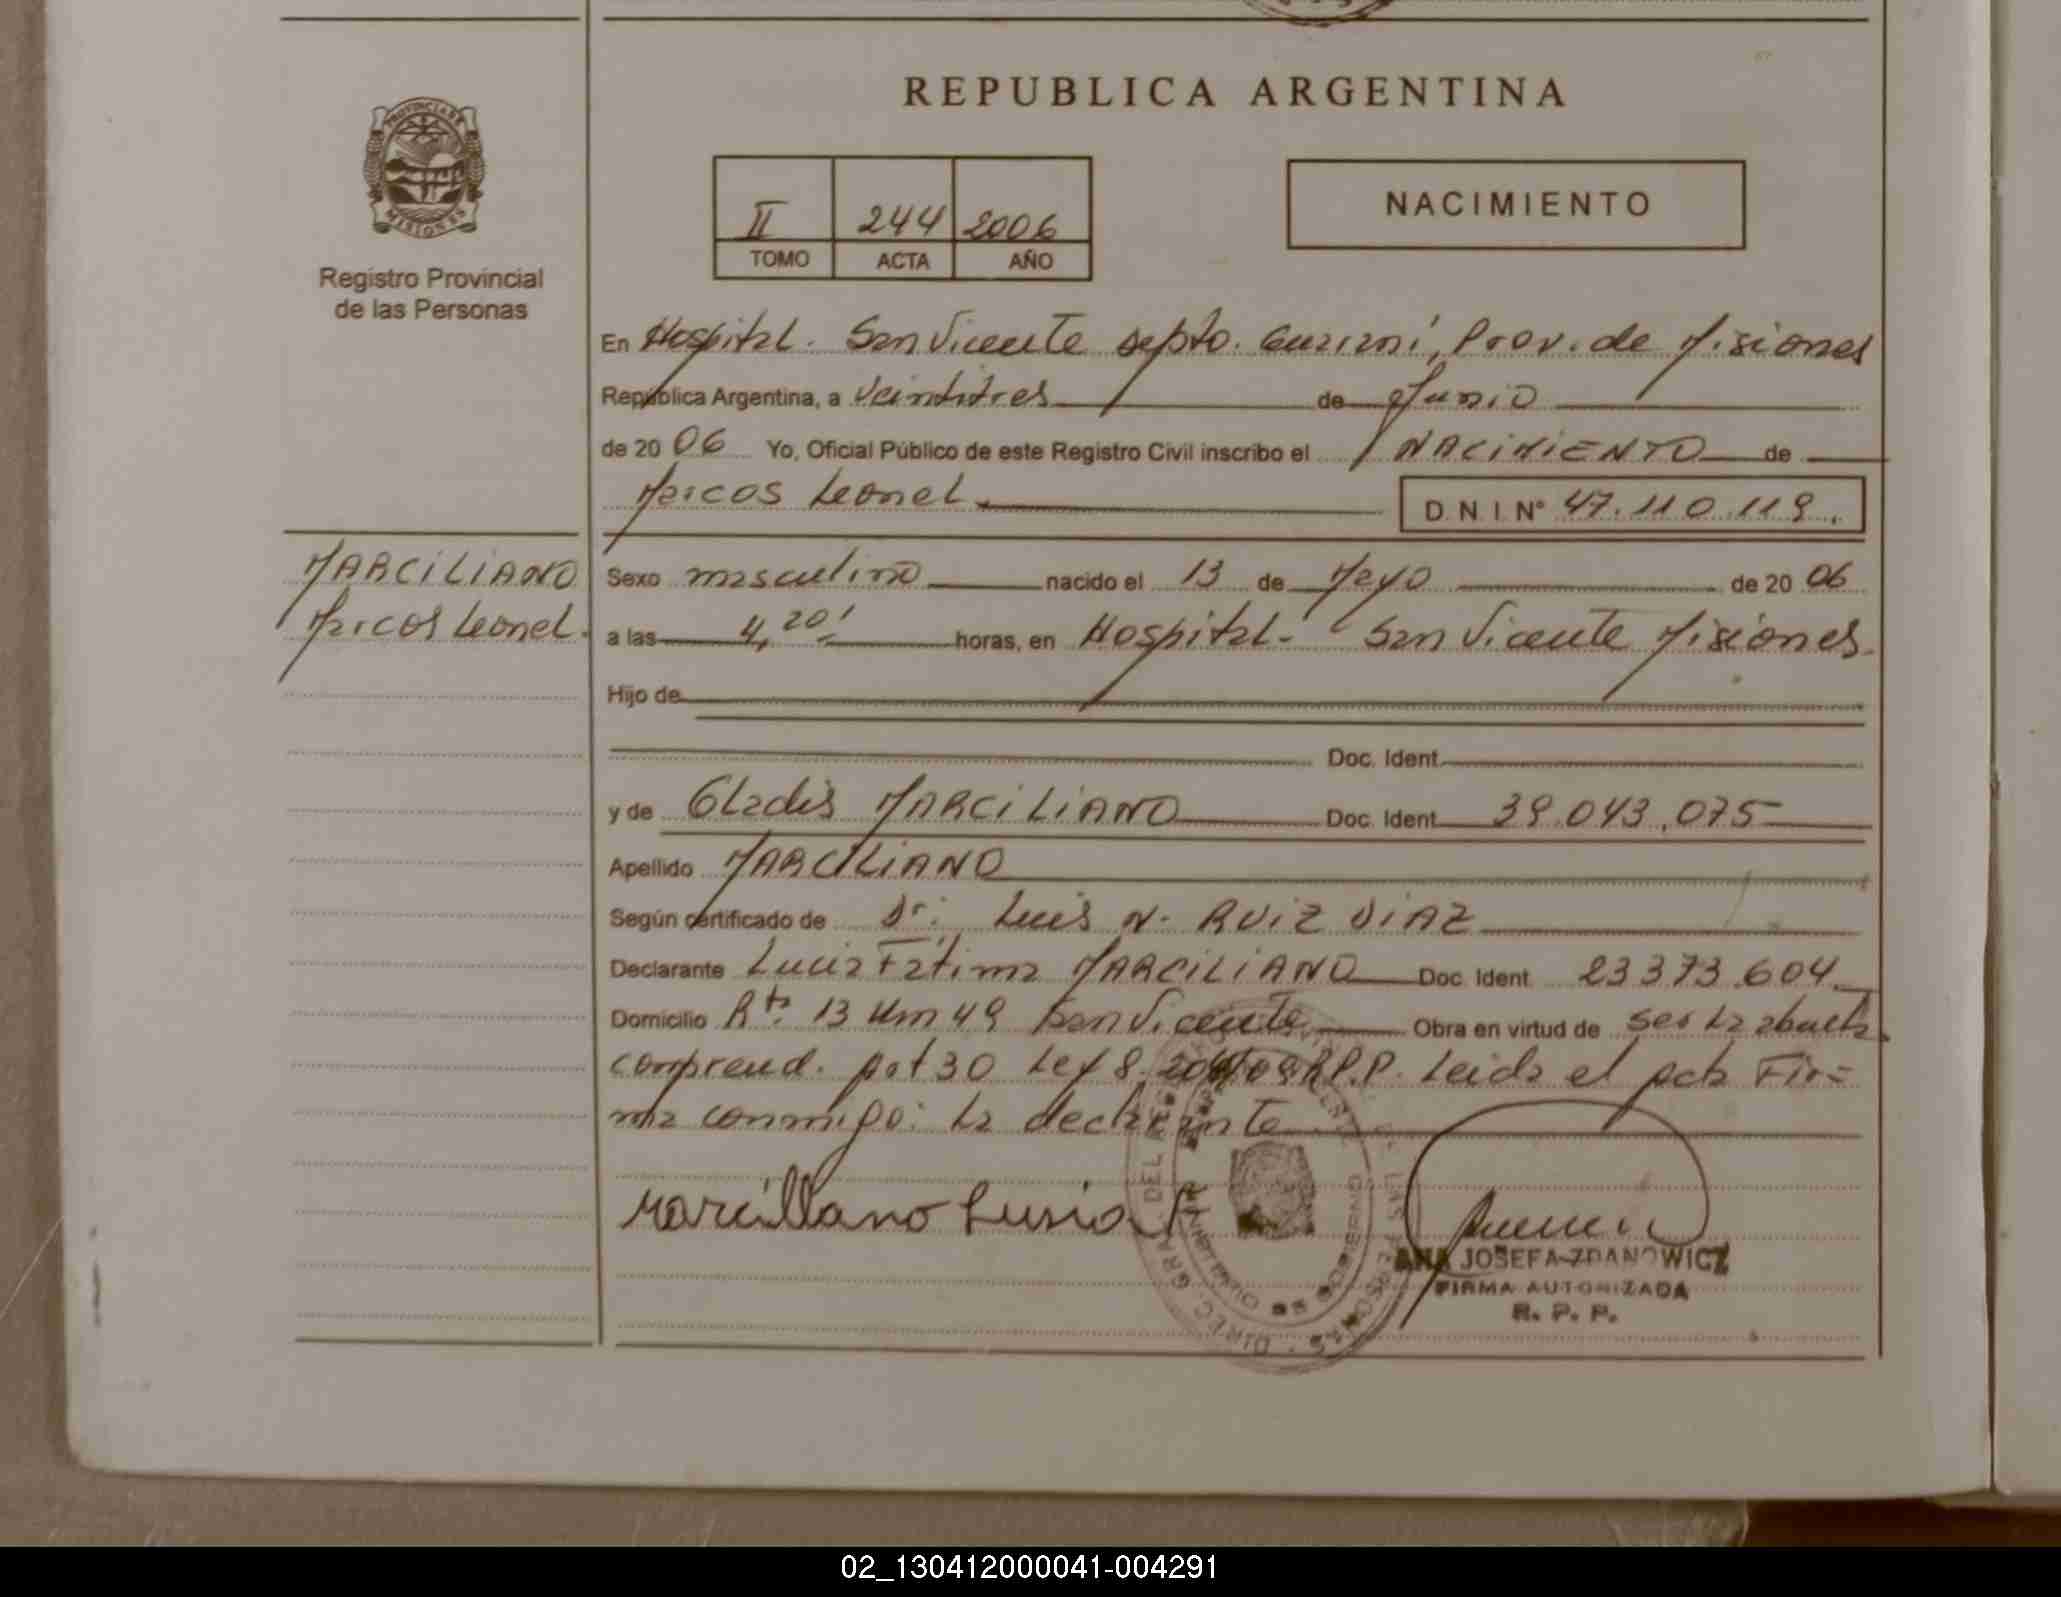 REPUBLICA ARGENTINA
PROVINCIA DE
MISIONES
Registro Provincial
de las Personas
II 244 2006
TOMO ACTA AÑO
NACIMIENTO
En Hospital. San Vicente Depto. Guaraní, Prov. de Misiones
República Argentina, a Veintitres de Junio
de 20 06 Yo, Oficial Público de este Registro Civil inscribo el NACIMIENTO de
Marcos Leonel D.N.I. Nº 47.110.119.
MARCILIANO
Marcos Leonel.
Sexo masculino nacido el 13 de Mayo de 20 06
a las 4,20' horas, en Hospital- San Vicente Misiones.
Hijo de
Doc. Ident.
y de Gladis MARCILIANO Doc. Ident. 39.043.075
Apellido MARCILIANO
Según certificado de Dr. Luis N. RUIZ DIAZ
Declarante Lucia Fátima MARCILIANO Doc. Ident. 23373.604.
Domicilio Rta. 13 Km 49 San Vicente Obra en virtud de ser la abuela
comprend. art 30 Ley 8.204 R.P.P. Leida el acta Fir=
ma conmigo: la declarante
Marcillano Lusia F
DIREC. GRAL. DEL REG. DE LAS PERSONAS
MINISTERIO DE GOBIERNO
ANA JOSEFA ZDANOWICZ
FIRMA AUTORIZADA
R. P. P.
02_130412000041-004291